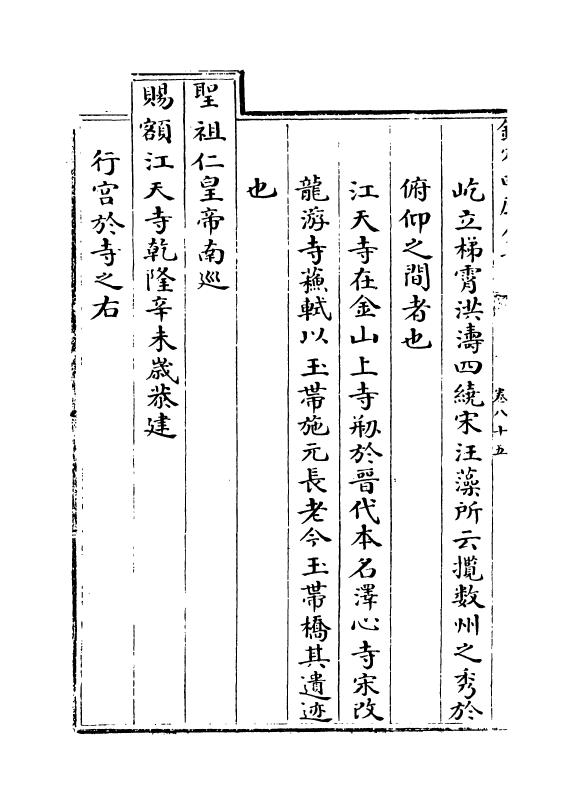 屹立梯霄洪濤四繞宋汪藻所云攬数州之秀於
俯仰之間者也
江天寺在金山上寺剙於晉代本名澤心寺宋改
龍游寺蘓軾以玉帶施元長老今玉帶橋其遺迹
也
聖祖仁皇帝南巡
賜額江天寺乾隆辛未歲恭建
行宫於寺之右
卷八十五